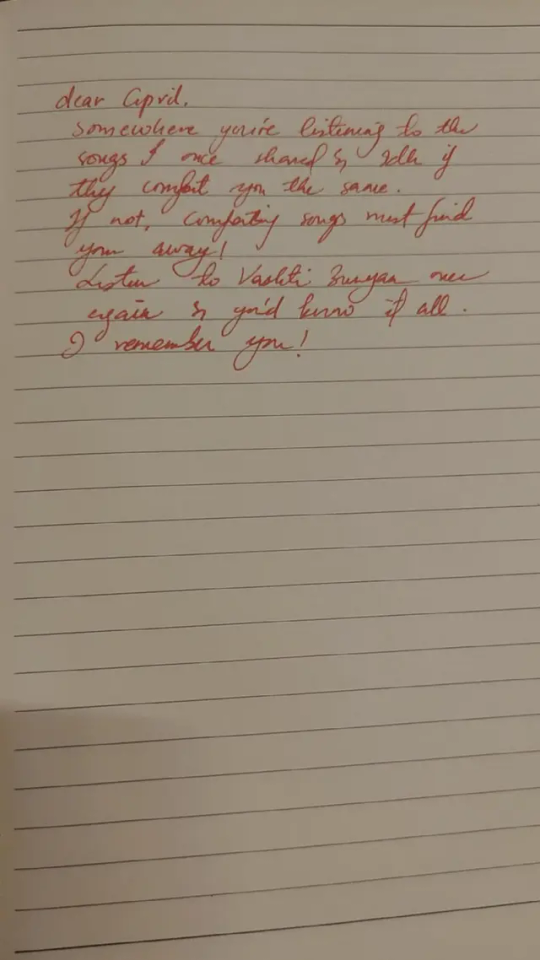 dear April.
Somewhere you're listening to the
songs I once shared & idk if
they comfort you the same.
If not, comforting songs must find
your away!
Listen to Vashti Bunyan once
again & you'd know it all.
I remember you!